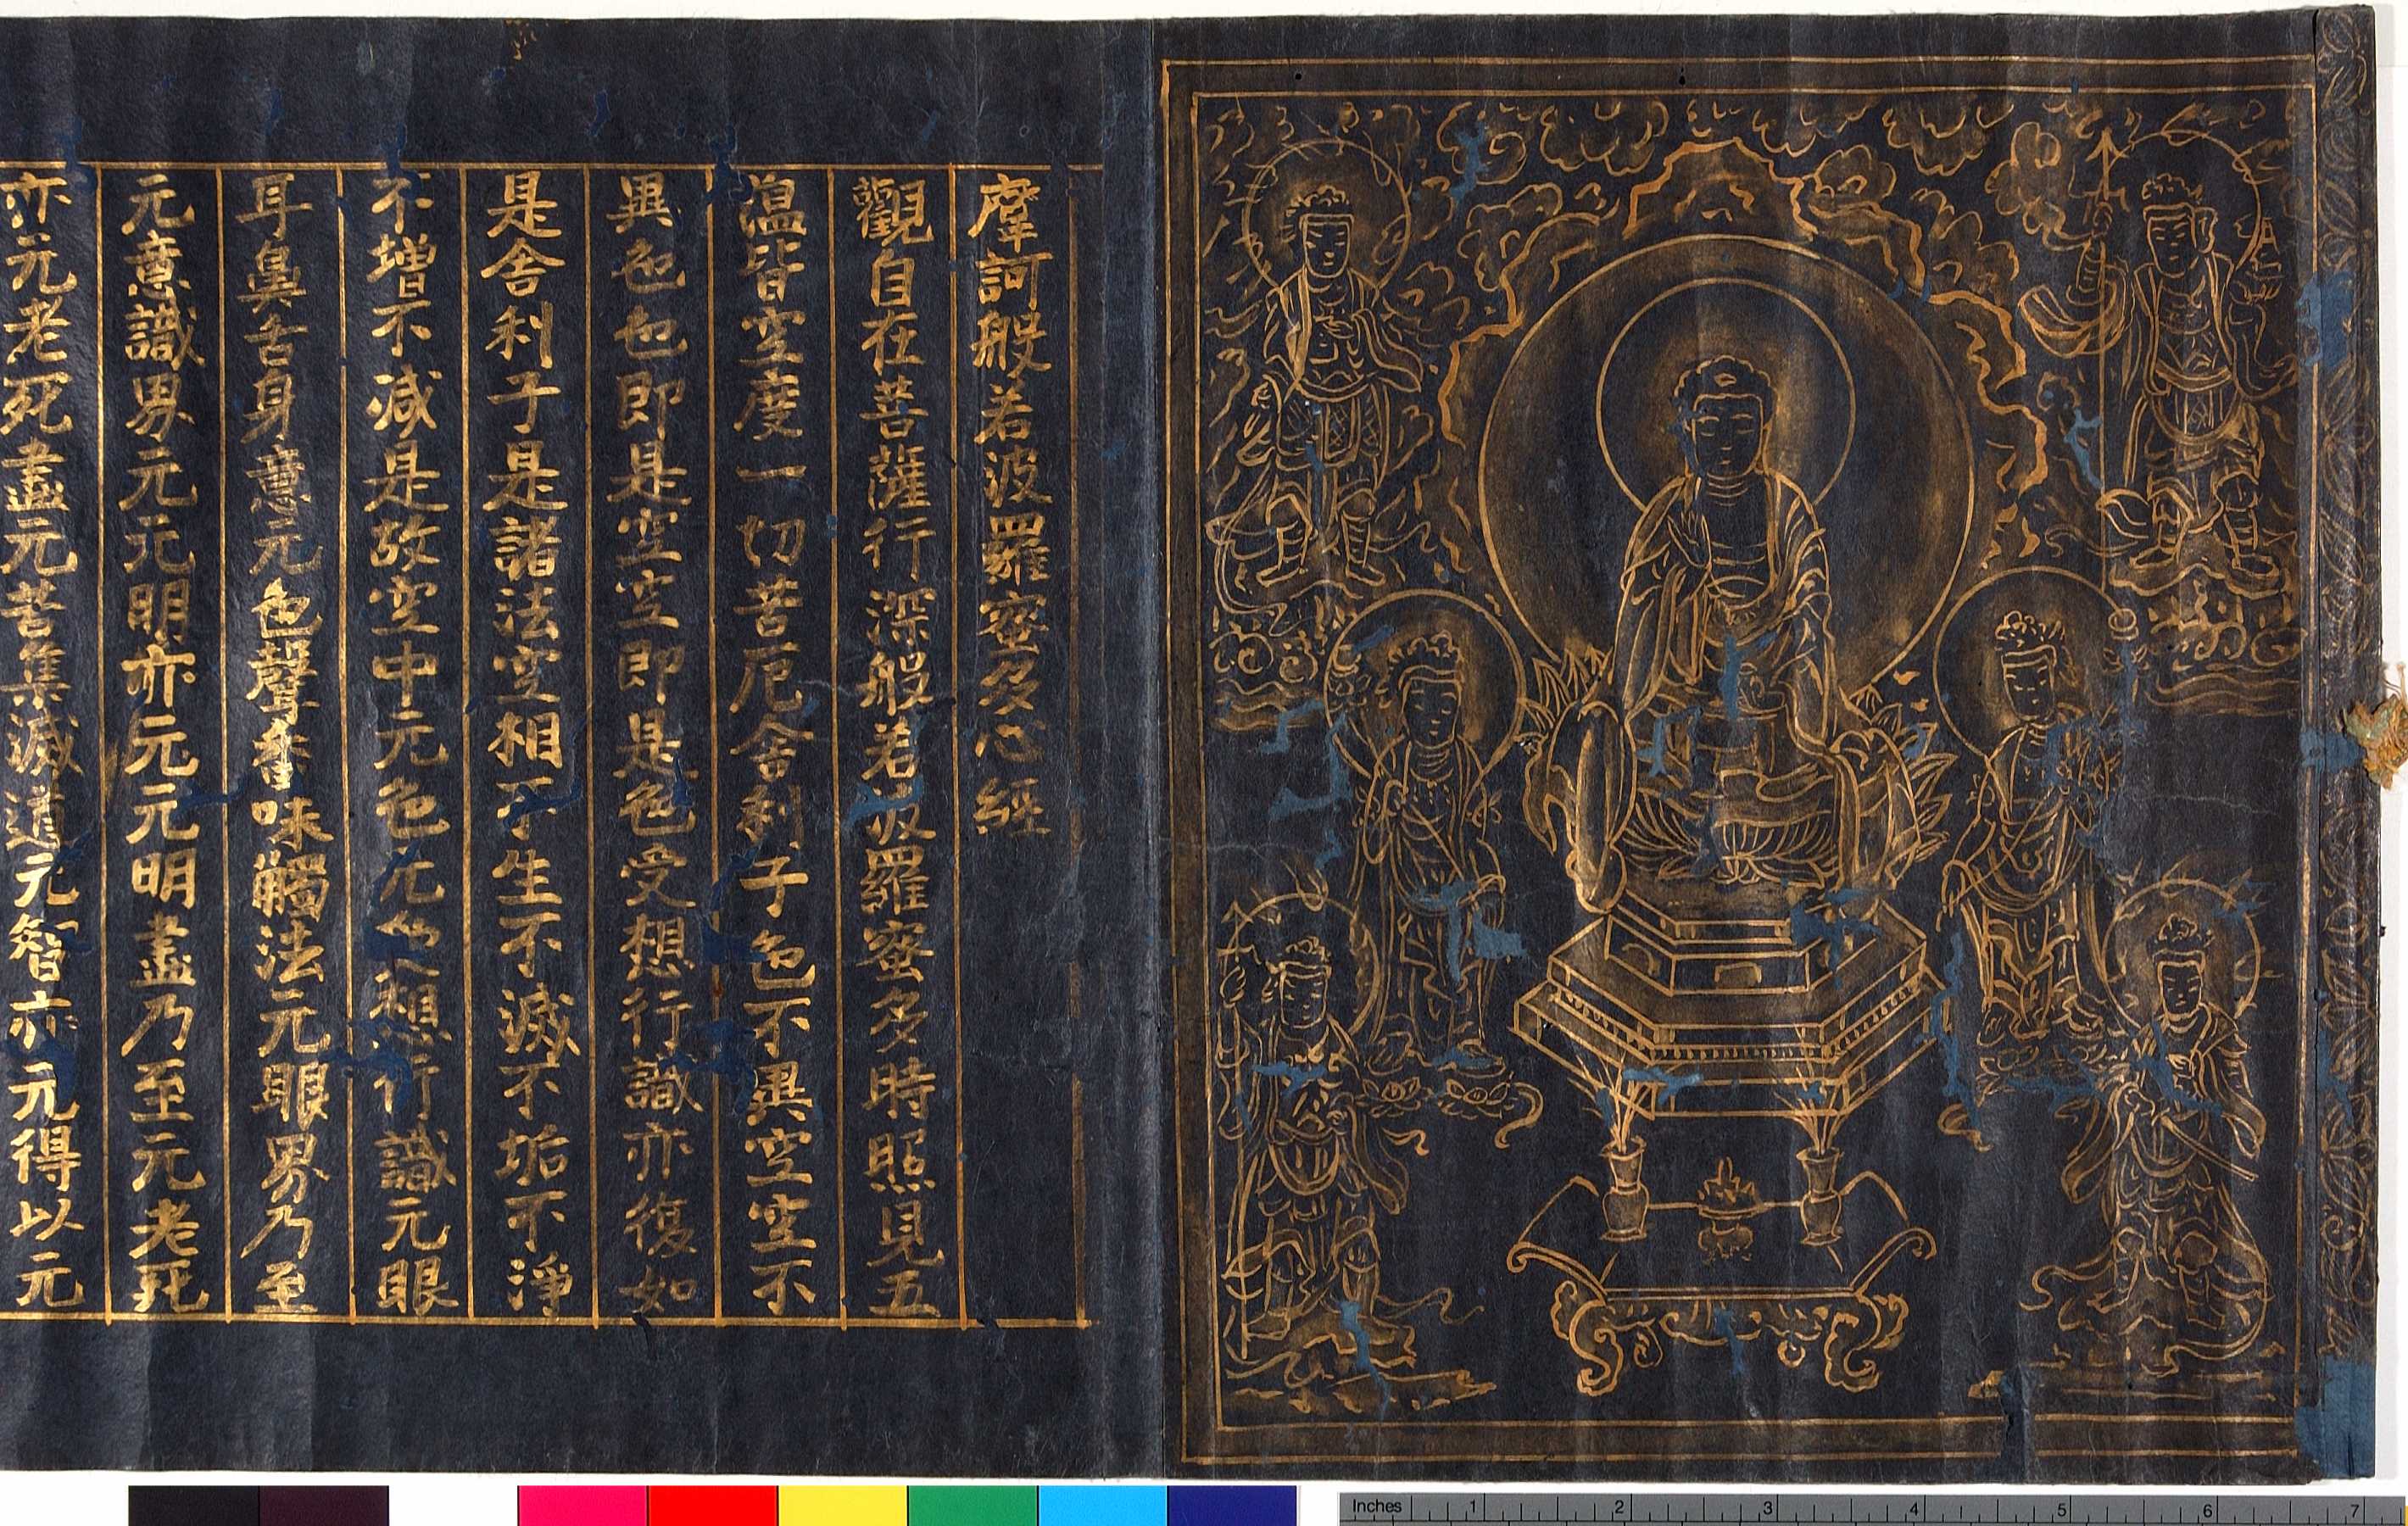 摩訶般若波羅蜜多心經
觀自在菩薩行深般若波羅蜜多時照見五
温皆空度一切苦厄舍利子色不異空空不
異色色即是空空即是色受想行識亦復如
是舍利子是諸法空相不生不滅不垢不淨
不增不減是故空中元色元受想行識元眼
耳鼻舌身意元色聲香味觸法元眼界乃至
元意識界元元明亦元元明盡乃至元老死
亦元老死盡元苦集滅道元智亦元得以元
Inches 1 2 3 4 5 6 7